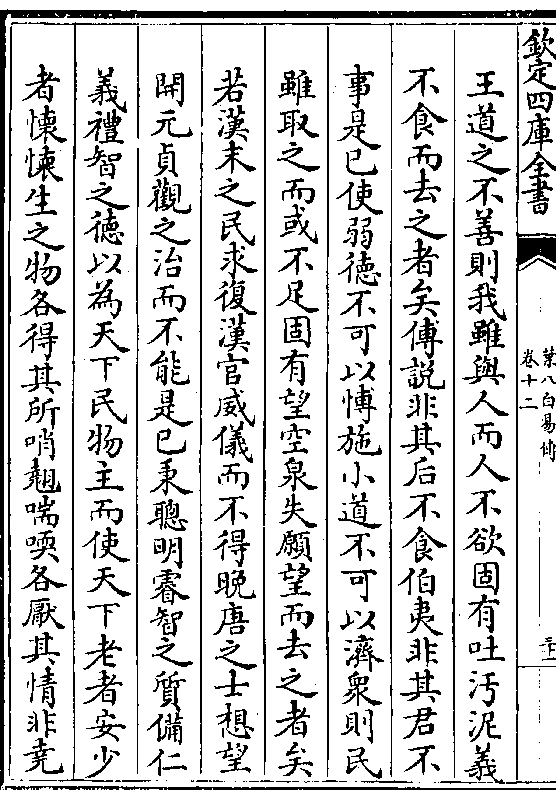 欽定四庫全書
葉八白易傳
卷十二
王道之不善則我雖與人而人不欲固有吐汚泥義
不食而去之者矣傅說非其后不食伯夷非其君不
事是已使弱德不可以愽施小道不可以濟衆則民
雖取之而或不足固有望空泉失願望而去之者矣
若漢末之民求復漢官威儀而不得晚唐之士想望
開元貞觀之治而不能是已秉聰明睿智之質備仁
義禮智之德以為天下民物主而使天下老者安少
者懐懐生之物各得其所哨翹喘耎各厭其情非堯